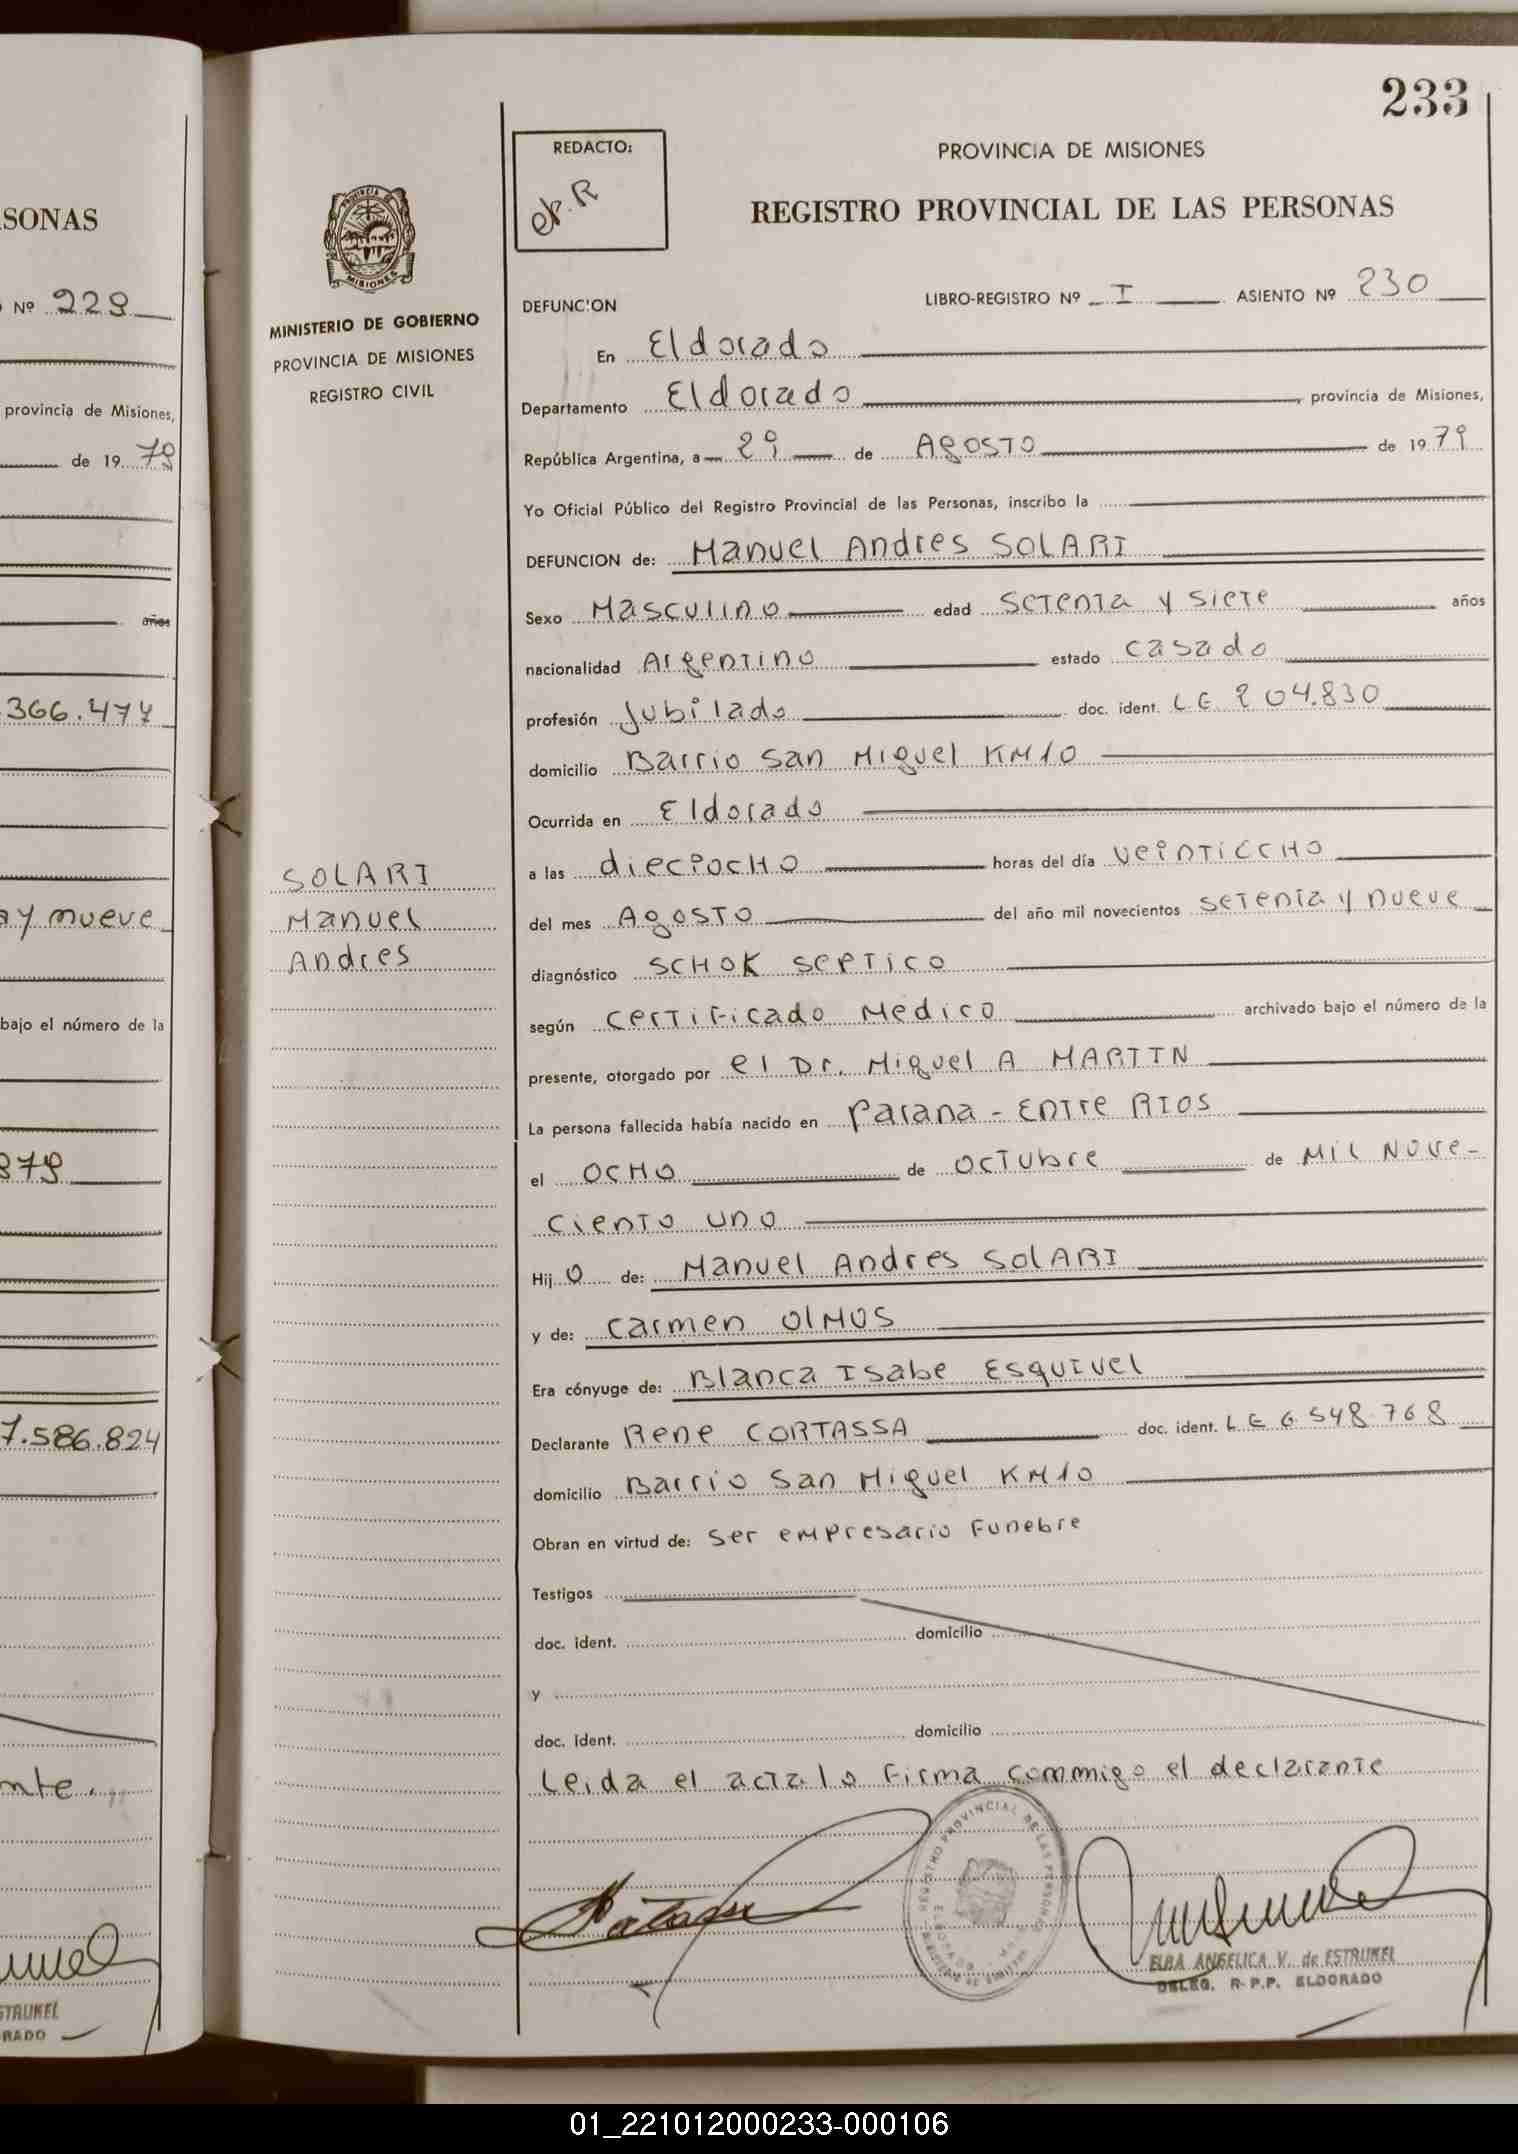 SONAS
Nº 229
provincia de Misiones,
de 19 79
años
366.477
ay nueve
bajo el número de la
879
7.586.824
nte.
STRUKEL
RADO
233
REDACTO:
PROVINCIA DE MISIONES
REGISTRO PROVINCIAL DE LAS PERSONAS
PROVINCIA DE
MISIONES
MINISTERIO DE GOBIERNO
PROVINCIA DE MISIONES
REGISTRO CIVIL
SOLARI
Manuel
Andres
DEFUNCION LIBRO-REGISTRO Nº I ASIENTO Nº 230
En Eldorado
Departamento Eldorado, provincia de Misiones,
República Argentina, a 29 de Agosto de 1979
Yo Oficial Público del Registro Provincial de las Personas, inscribo la
DEFUNCION de: Manuel Andres SOLARI
Sexo Masculino edad setenta y siete años
nacionalidad Argentino estado casado
profesión Jubilado doc. ident. LE 204.830
domicilio Barrio San Miguel KM10
Ocurrida en Eldorado
a las dieciocho horas del día veintiocho
del mes Agosto del año mil novecientos setenta y nueve
diagnóstico SCHOK SEPTICO
según certificado Medico archivado bajo el número de la
presente, otorgado por el Dr. Miguel A MARTIN
La persona fallecida había nacido en Parana - Entre RIOS
el OCHO de OCTUbre de MIL Nove-
ciento uno
Hijo de: Manuel Andres SOlARI
y de: Carmen OlMOS
Era cónyuge de: Blanca Isabe Esquivel
Declarante Rene CORTASSA doc. ident. LE 6.548.768
domicilio Barrio San Miguel KM10
Obran en virtud de: ser empresario Funebre
Testigos
doc. ident. domicilio
y
doc. ident. domicilio
Leida el acta lo firma commigo el declarante
REGISTRO PROVINCIAL DE LAS PERSONAS
ELDORADO
ELBA ANGELICA V. de ESTRUKEL
DELEG. R-P.P. ELDORADO
01_221012000233-000106